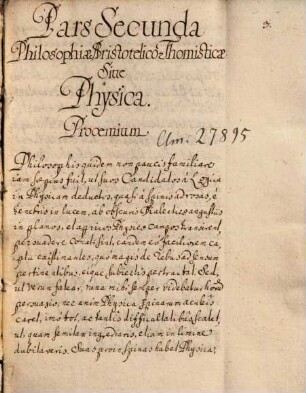 3.
Pars Secunda
Philosophiæ Aristotelicò-Thomisticæ
Siue
Physica.
Procemium.
Clm. 27895
Philosophis quidem non paucis familiare
iam sæpius fuit, ut suos Candidatos à Logica
in Physicam deductos, quasi à spinis ad rosas, è
tenebris in lucem, ab obscuris Dialecticæ angustiis
in planos, et apricos Physicæ campos transirent,
persuadere conati sint, eandem ex faciliorem ca-
piti existimantes, quo magis de rebus ad sensum
pertinentibus, eique subiectis pertractat. Sed,
ut verum fatear, rara nihi semper videbatur hæc
persuasio, nec enim Physica spinarum aculeis
caret, imò tot, ac tantis difficultatibus scatet,
ut quam semitam ingrediaris, etiam in limine
dubitaveris. Suas proin spinas habet Physica,